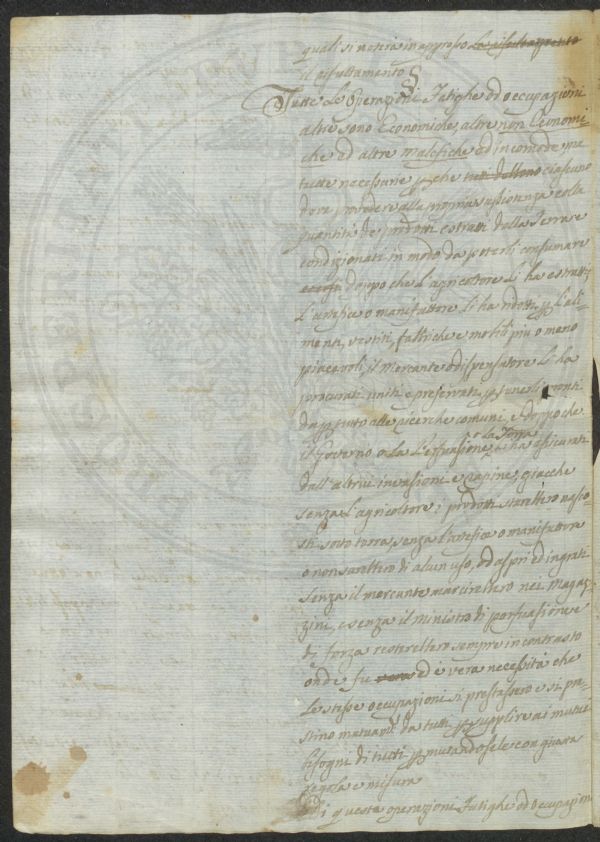 quali si notirà in appresso
il risultamento §
Tutte le Operazioni Fatighe ed occupazioni
altre sono Economiche, altre non Economi-
che ed altre malefiche ed incomode, ma
tutte necessarie che ciascuno
deve provedere alla propria sussistenza colla
quantità de' prodotti estratti dalla Terra e
condizionati in modo da poterli consumare
doppo che l'agricoltore li ha estratti
l'artefice o manifattore li ha ridotti p l'ali-
menti, vestiti, fabbriche e mobili più o meno
piacevoli, il mercante o dispensatore li ha
procurati uniti e preservati p tenerli pronti
da p tutto alle ricerche comuni, e doppo che
il Governo o la Persuasione e la Forza li ha assicurati
dall'altrui invasioni e rapine, giacche
senza l'agricoltore i prodotti starebbero nasco-
sti sotto terra, senza l'artefice o manifattore
o non sarebbero di alcun uso, od aspri ed ingrati
senza il mercante marcirebbero nei magaz-
zini, e senza il ministro di persuasione e
di forza resterebbero sempre in contrasto
onde fu ed è vera necessità che
le stesse occupazioni si prestassero e si pre-
stino mutuamte da tutti p supplire ai mutui
bisogni di tutti p mutandosele con giusta
regola e misura
Di queste operazioni Fatighe ed occupazioni